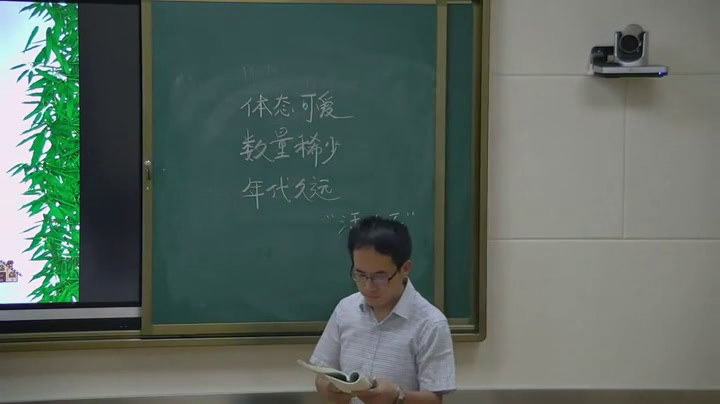 体态可爱
数量稀少
年代久远
“活